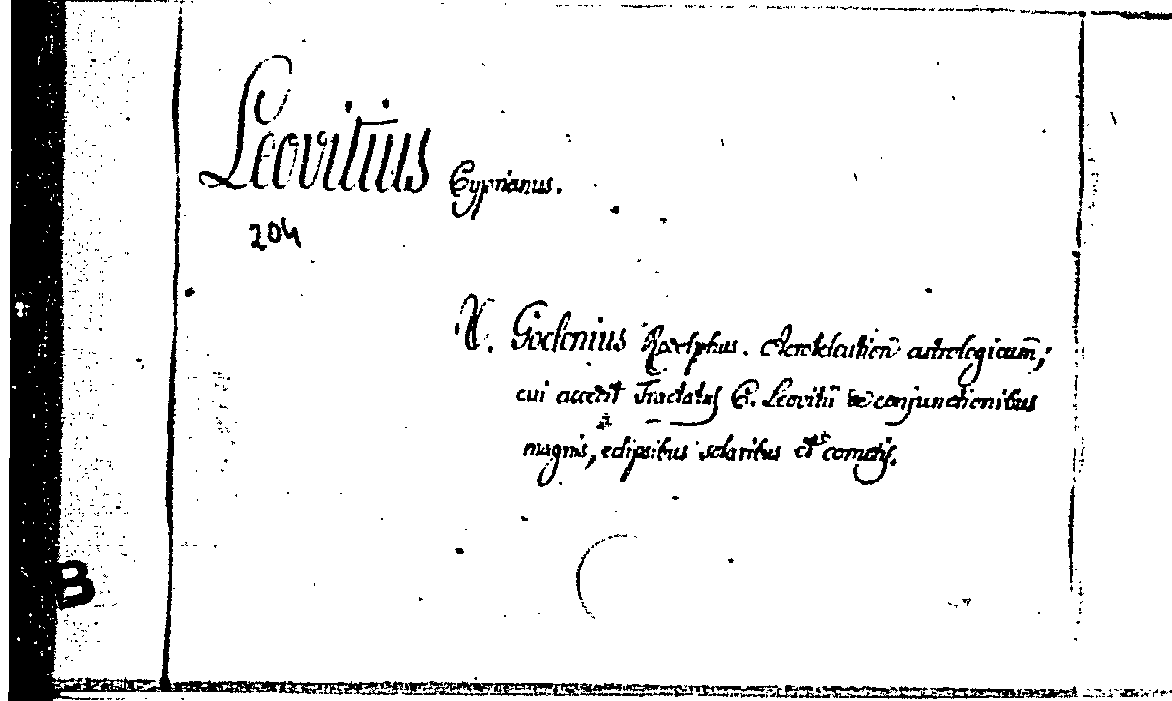 Leovitius Cyprianus.
204
V. Goclenius Rodolphus. Acroteleution astrologicum,
cui accedit Tractatus C. Leovitii de conjunctionibus
magnis, eclipsibus solaribus et cometis.
B